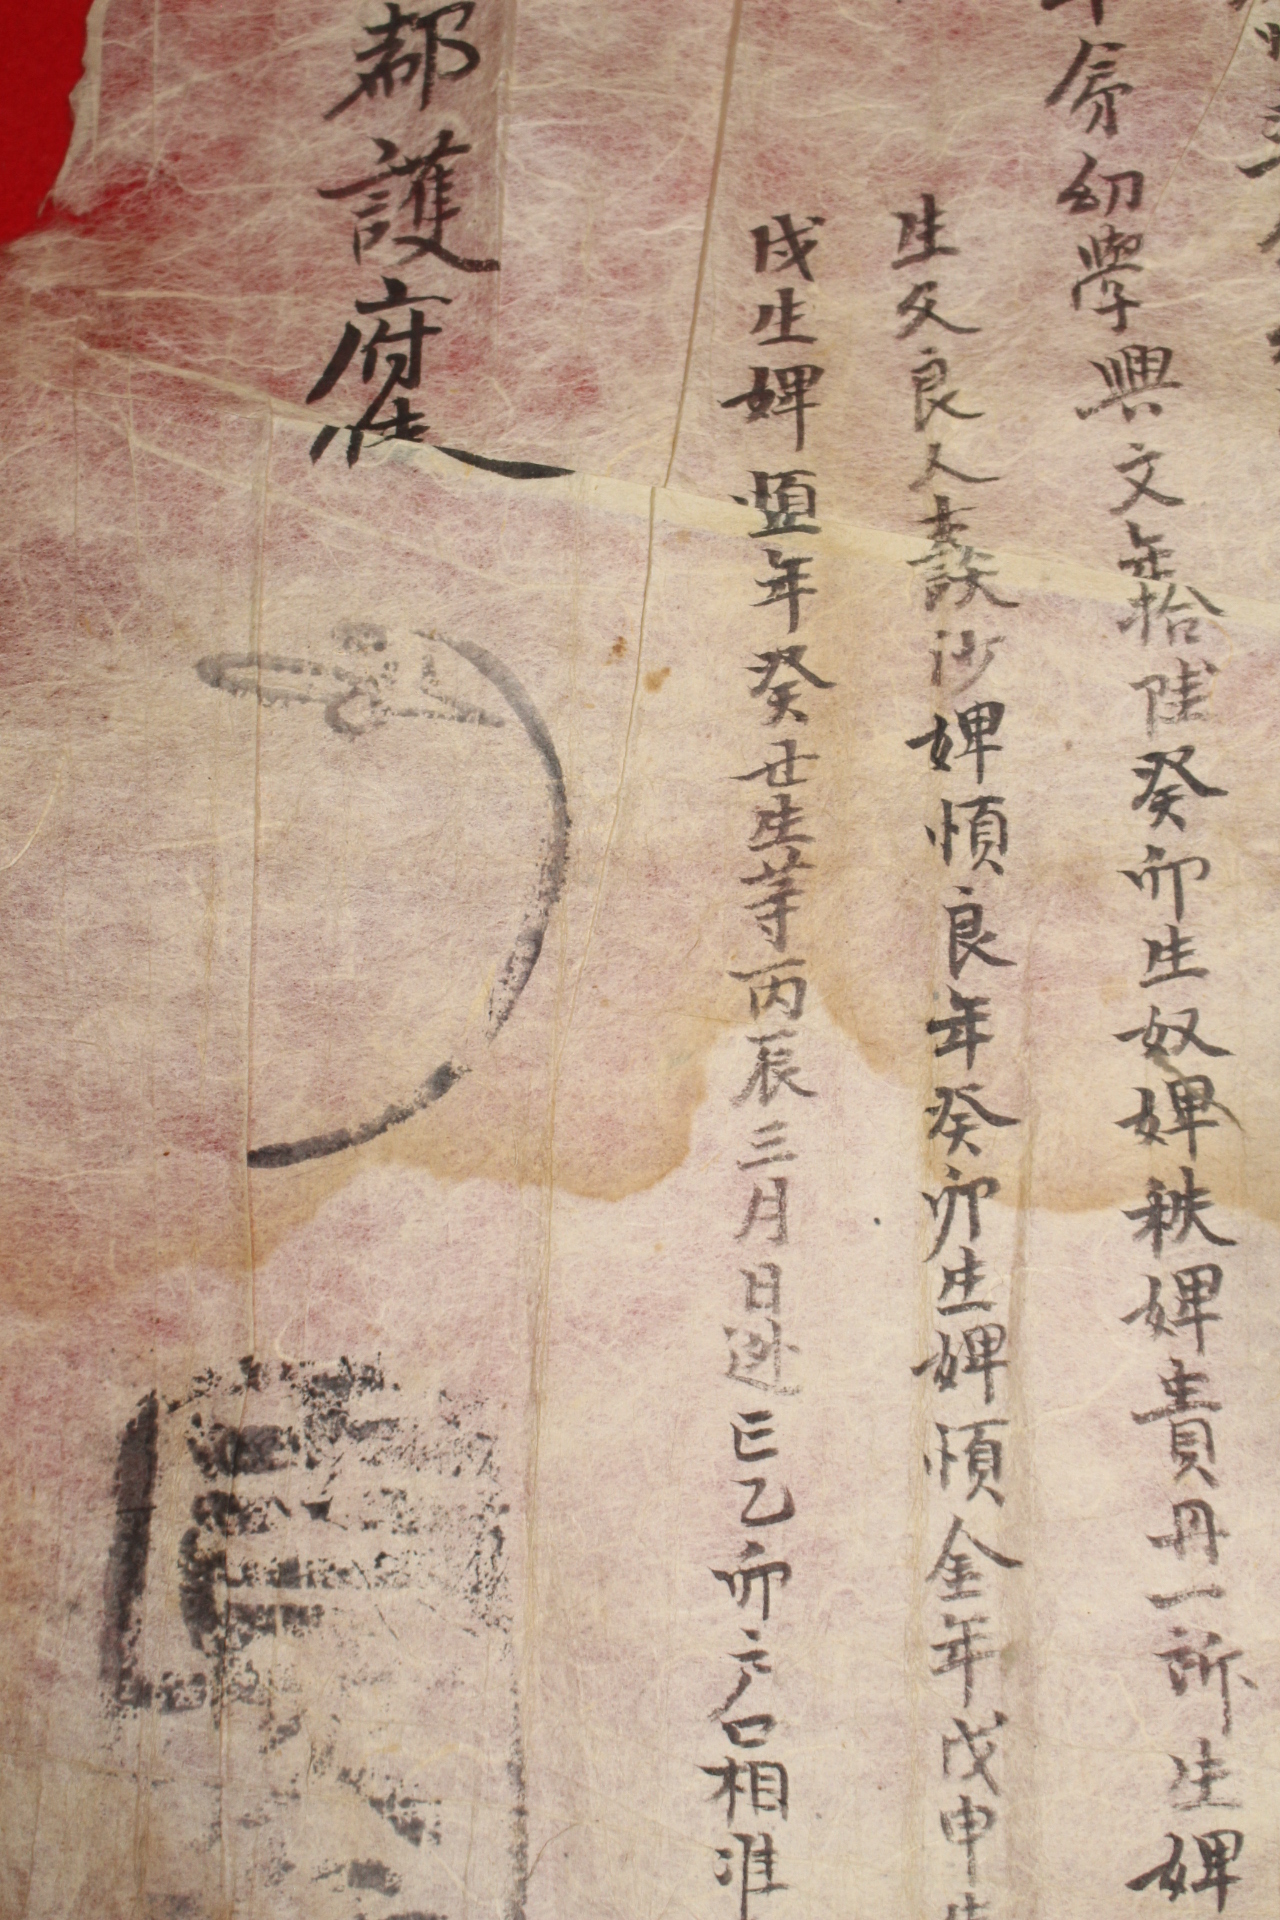 幼學興文年拾陸癸卯生奴婢秩婢貴丹一所生婢
生父良人談沙婢順良年癸卯生婢順金年戊申生
戌生婢年癸丑生等丙辰三月日乙卯戶口相准
都護府使